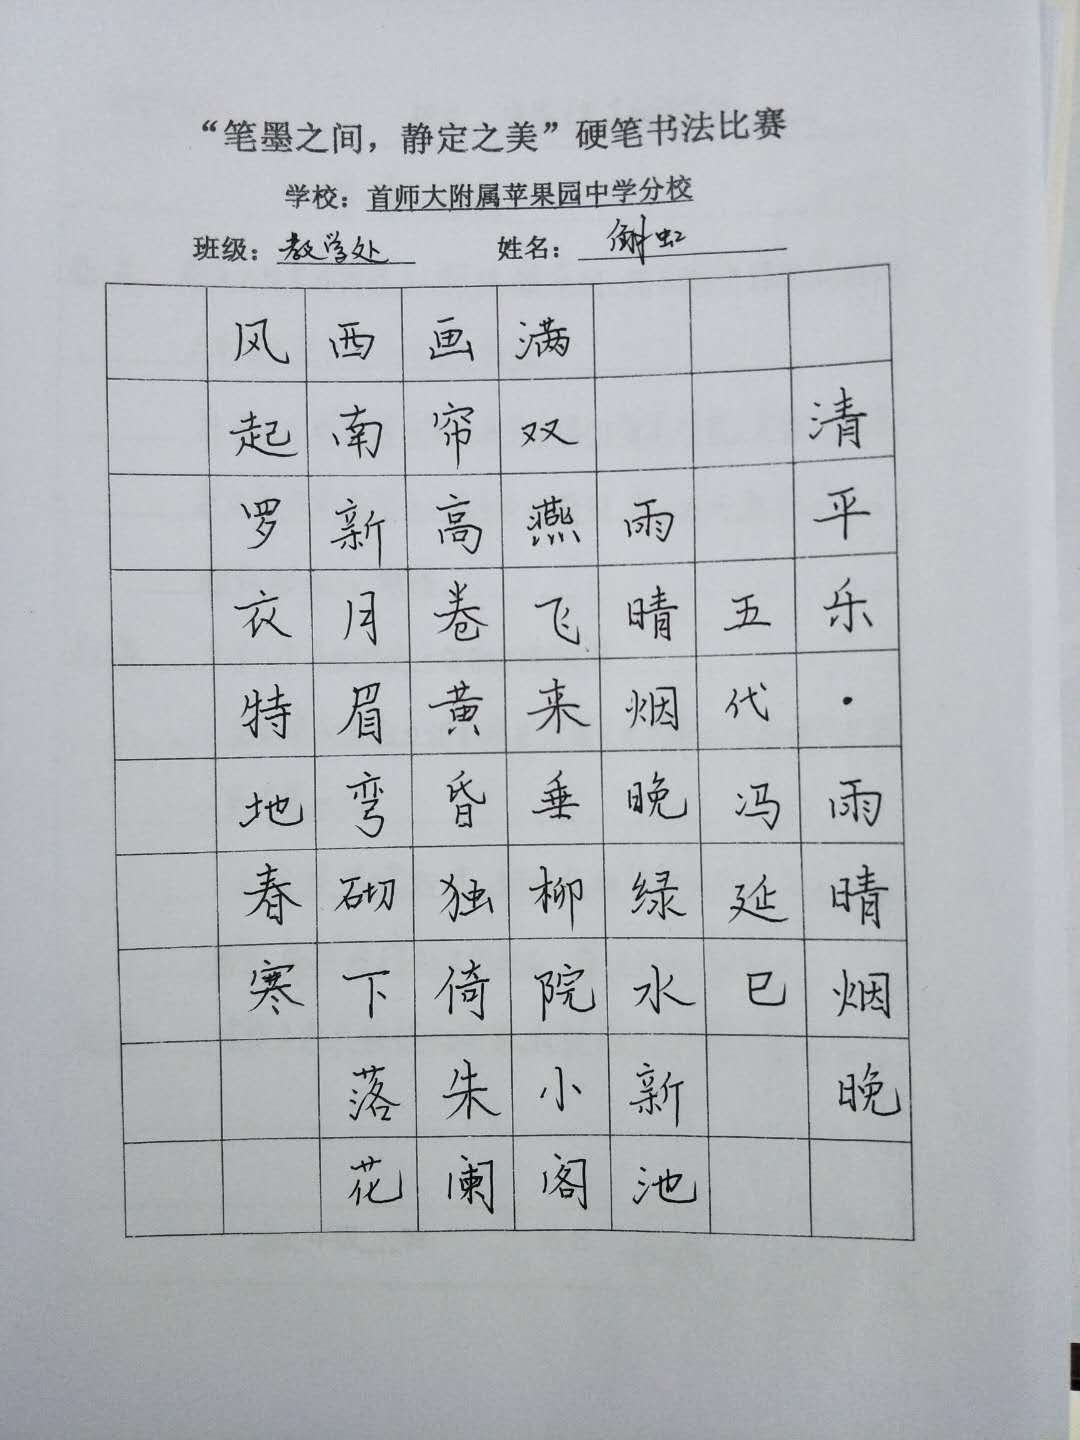 “笔墨之间，静定之美”硬笔书法比赛
学校：首师大附属苹果园中学分校
班级：教学处 姓名：虹
清平乐·雨晴烟晚
五代冯延巳
雨晴烟晚绿水新池
满双燕飞来垂柳院小阁
画帘高卷黄昏独倚朱阑
西南新月眉弯砌下落花
风起罗衣特地春寒